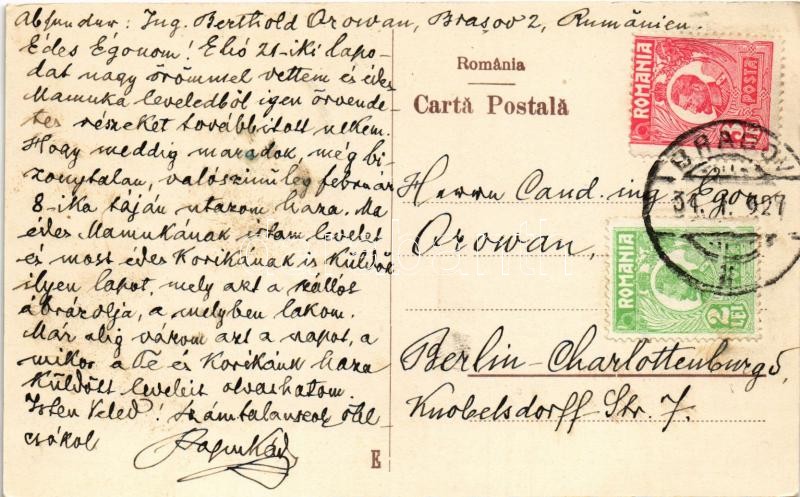 Absender: Ing. Berthold Orowan, Brașov 2, Rumänien.
Édes Égonom! Első 21-iki lapo-
dat nagy örömmel vettem és édes
Mamuka leveledből igen örvende-
tes részeket továbbitott nekem.
Hogy meddig maradok, még bi-
zonytalan, valószinüleg február
8-ika táján utazom haza. Ma
édes Mamukának irtam levelet
és most édes Korikának is küldök
ilyen lapot, mely azt a szállót
ábrázolja, a melyben lakom.
Már alig várom azt a napot, a
mikor a Te és Korikánk haza
küldött leveleit olvashatom.
Isten Veled! Számtalanszor ölel
csókol
Papukád
România
Cartă Postală
Herrn Cand. ing. Egon
Orowan,
Berlin-Charlottenburg 5,
Knobelsdorff-Str. 7.
E
ROMANIA
POSTA
3 LEI
BRAȘOV
31. 1. 927
ROMANIA
2 LEI